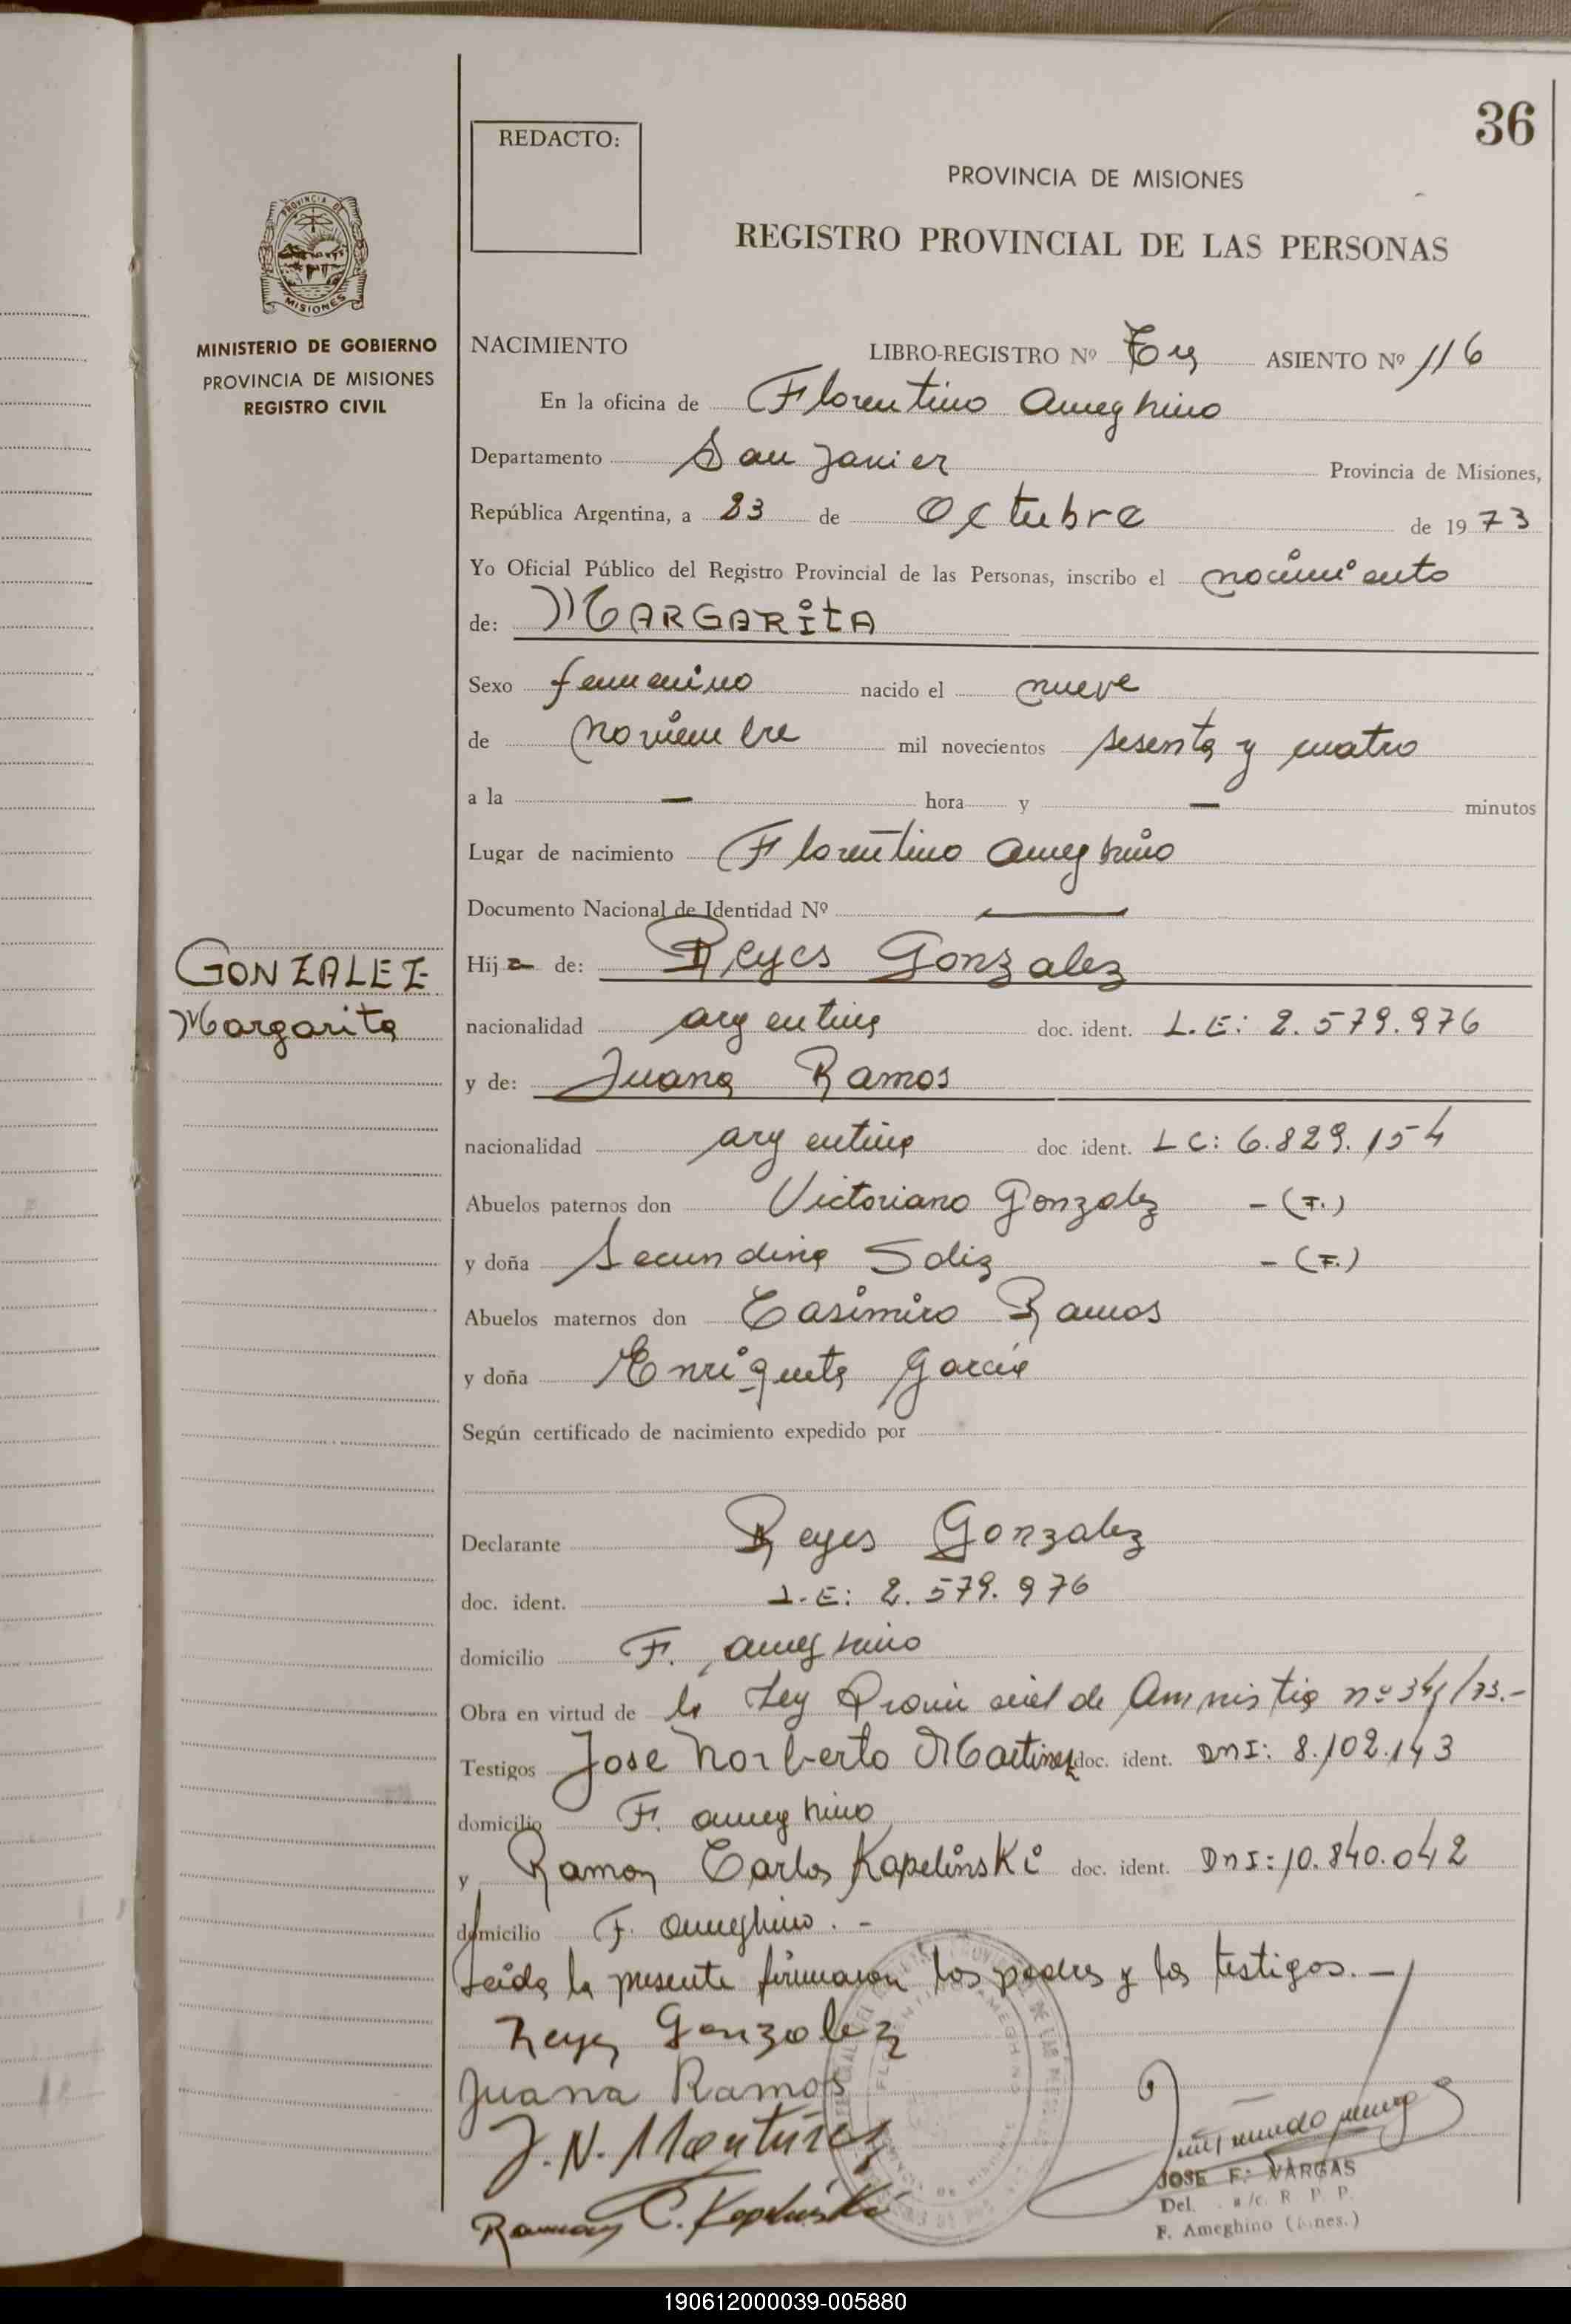 36
REDACTO:
PROVINCIA DE MISIONES
REGISTRO PROVINCIAL DE LAS PERSONAS
PROVINCIA DE
MISIONES
MINISTERIO DE GOBIERNO
PROVINCIA DE MISIONES
REGISTRO CIVIL
NACIMIENTO LIBRO-REGISTRO Nº ASIENTO Nº 116
En la oficina de Florentino Ameghino
Departamento San Javier Provincia de Misiones,
República Argentina, a 23 de Octubre de 1973
Yo Oficial Público del Registro Provincial de las Personas, inscribo el nacimiento
de: MARGARITA
Sexo femenino nacido el nueve
de noviembre mil novecientos sesenta y cuatro
a la — hora y — minutos
Lugar de nacimiento Florentino Ameghino
Documento Nacional de Identidad Nº —
GONZALEZ
Margarita
Hija de: Reyes Gonzalez
nacionalidad argentina doc. ident. L.E: 2.579.976
y de: Juana Ramos
nacionalidad argentina doc ident. LC: 6.829.154
Abuelos paternos don Victoriano Gonzalez - (F.)
y doña Secundina - (F.)
Abuelos maternos don Casimiro Ramos
y doña Enriqueta Garcia
Según certificado de nacimiento expedido por
Declarante Reyes Gonzalez
doc. ident. L.E: 2.579.976
domicilio F. Ameghino
Obra en virtud de la Ley Provincial de Amnistia nº /73.-
Testigos Jose Norberto Martinez doc. ident. DNI: 8.102.143
domicilio F. Ameghino
y Ramon Carlos Kapelinski doc. ident. DNI: 10.840.042
domicilio F. Ameghino. -
Leida la presente firmaron los padres y los testigos. —
Reyes Gonzalez
Juana Ramos
J. N. Martinez
Ramon C. Kapelinski
JOSE F. VARGAS
Del. a/c. R P P.
F. Ameghino (Mnes.)
190612000039-005880